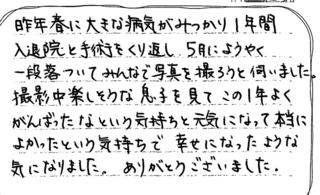 昨年春に大きな病気がみつかり1年間
入退院と手術をくり返し 5月にようやく
一段落ついてみんなで写真を撮ろうと伺いました。
撮影中楽しそうな息子を見て この1年よく
がんばったなという気持ちと元気になって本当に
よかったという気持ちで 幸せになったような
気になりました。 ありがとうございました.